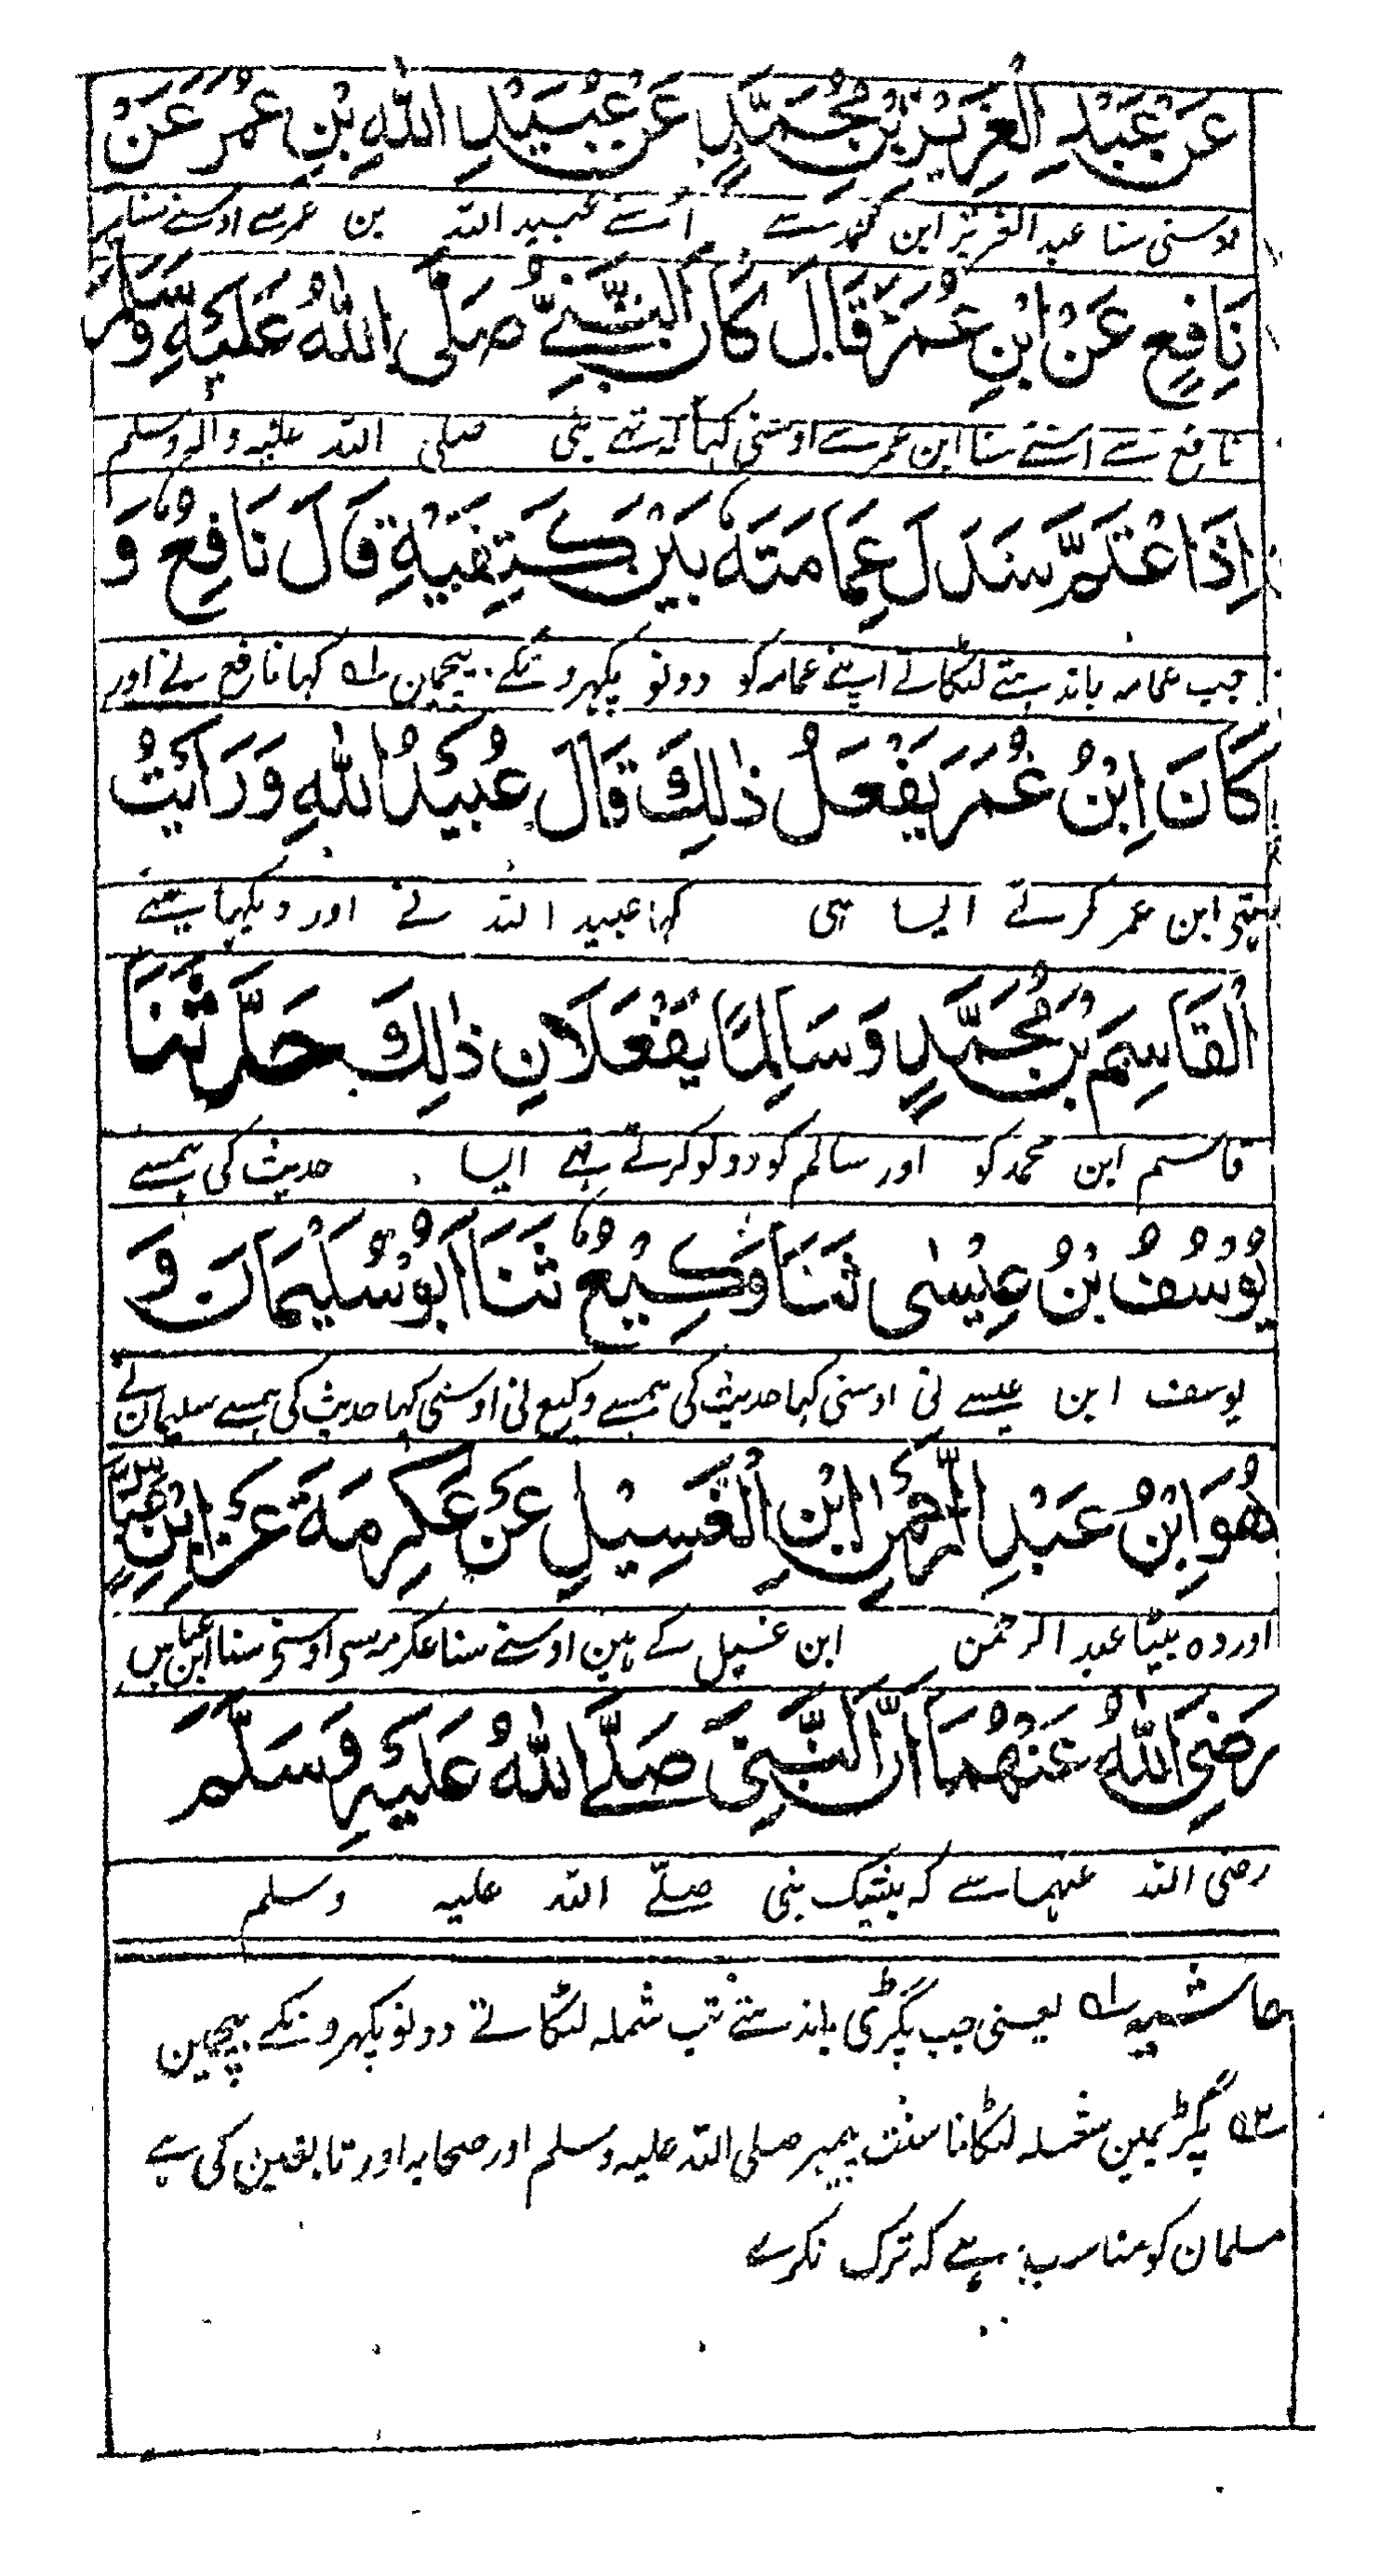 عَنْ عَبْدِ الْعَزِيْزِ بْنِ مُحَمَّدٍ عَنْ عُبَيْدِ اللّٰهِ بْنِ عُمَرَ عَنْ
اوسنی سنا عبد العزیز ابن محمد سے اُسنے عبید اللہ بن عمر سے اوسنے سنا
نَافِعٍ عَنْ ابْنِ عُمَرَ قَالَ كَانَ النَّبِيُّ صَلَّى اللّٰهُ عَلَيْهِ وَسَلَّمَ
نافع سے اسنے سنا ابن عمر سے اوسنی کہا کہ تہے نبی صلی اللہ علیہ وآلہ وسلم
اِذَا اعْتَمَّ سَدَلَ عِمَامَتَهٗ بَيْنَ كَتِفَيْهِ قَالَ نَافِعٌ وَ
جب عمامہ باندہتے لٹکاتے اپنے عمامہ کو دونو پکہرونکے بیچمین ۱؎ کہا نافع نے اور
كَانَ اِبْنُ عُمَرَ يَفْعَلُ ذٰلِكَ قَالَ عُبَيْدُ اللّٰهِ وَرَاَيْتُ
تہی ابن عمر کرتے ایسا ہی کہا عبید اللہ نے اور دیکہا مینے
الْقَاسِمَ بْنَ مُحَمَّدٍ وَسَالِمًا يَفْعَلَانِ ذٰلِكَ حَدَّثَنَا
قاسم ابن محمد کو اور سالم کو دونو کرتے تہے ایسا حدیث کی ہمسے
يُوْسُفُ بْنُ عِيْسٰى ثَنَا وَكِيْعٌ ثَنَا اَبُوْ سُلَيْمَانَ وَ
یوسف ابن عیسے نی اوسنی کہا حدیث کی ہمسے وکیع نی اوسنی کہا حدیث کی ہمسے سلیمان نے
هُوَ ابْنُ عَبْدِ الرَّحْمٰنِ ابْنِ الْغَسِيْلِ عَنْ عِكْرِمَةَ عَنْ ابْنِ عَبَّاسٍ
اور وہ بیٹا عبد الرحمن ابن غسیل کے ہین اوسنے سنا عکرمہ سی اوسنی سنا ابن عباس
رَضِيَ اللّٰهُ عَنْهُمَا اَنَّ النَّبِيَّ صَلَّے اللّٰهُ عَلَيْهِ وَسَلَّمَ
رضی اللہ عنہما سے کہ بیشک نبی صلّے اللہ علیہ وسلم
حاشیہ ۱؎ یعنی جب پگڑی باندہتے تب شملہ لٹکاتے دونو پکہرونکے بیچمین
۲؎ پگڑیمین شملہ لٹکانا سنت پیمبر صلی اللہ علیہ وسلم اور صحابہ اور تابعین کی ہے
مسلمان کو مناسب ہے کہ ترک نکرے